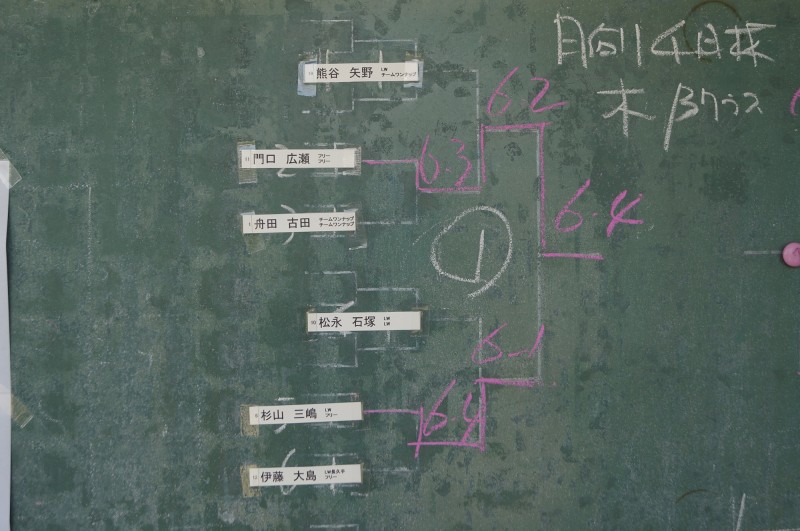 月向リ4日杯
木 βクラス
熊谷 矢野 LW チームワンナップ
6.2
門口 広瀬 フリー フリー
6.3
舟田 古田 チームワンナップ チームワンナップ
6.4
①
松永 石塚 LW LW
6-1
杉山 三嶋 LW フリー
6.4
伊藤 大島 LW長久手 フリー